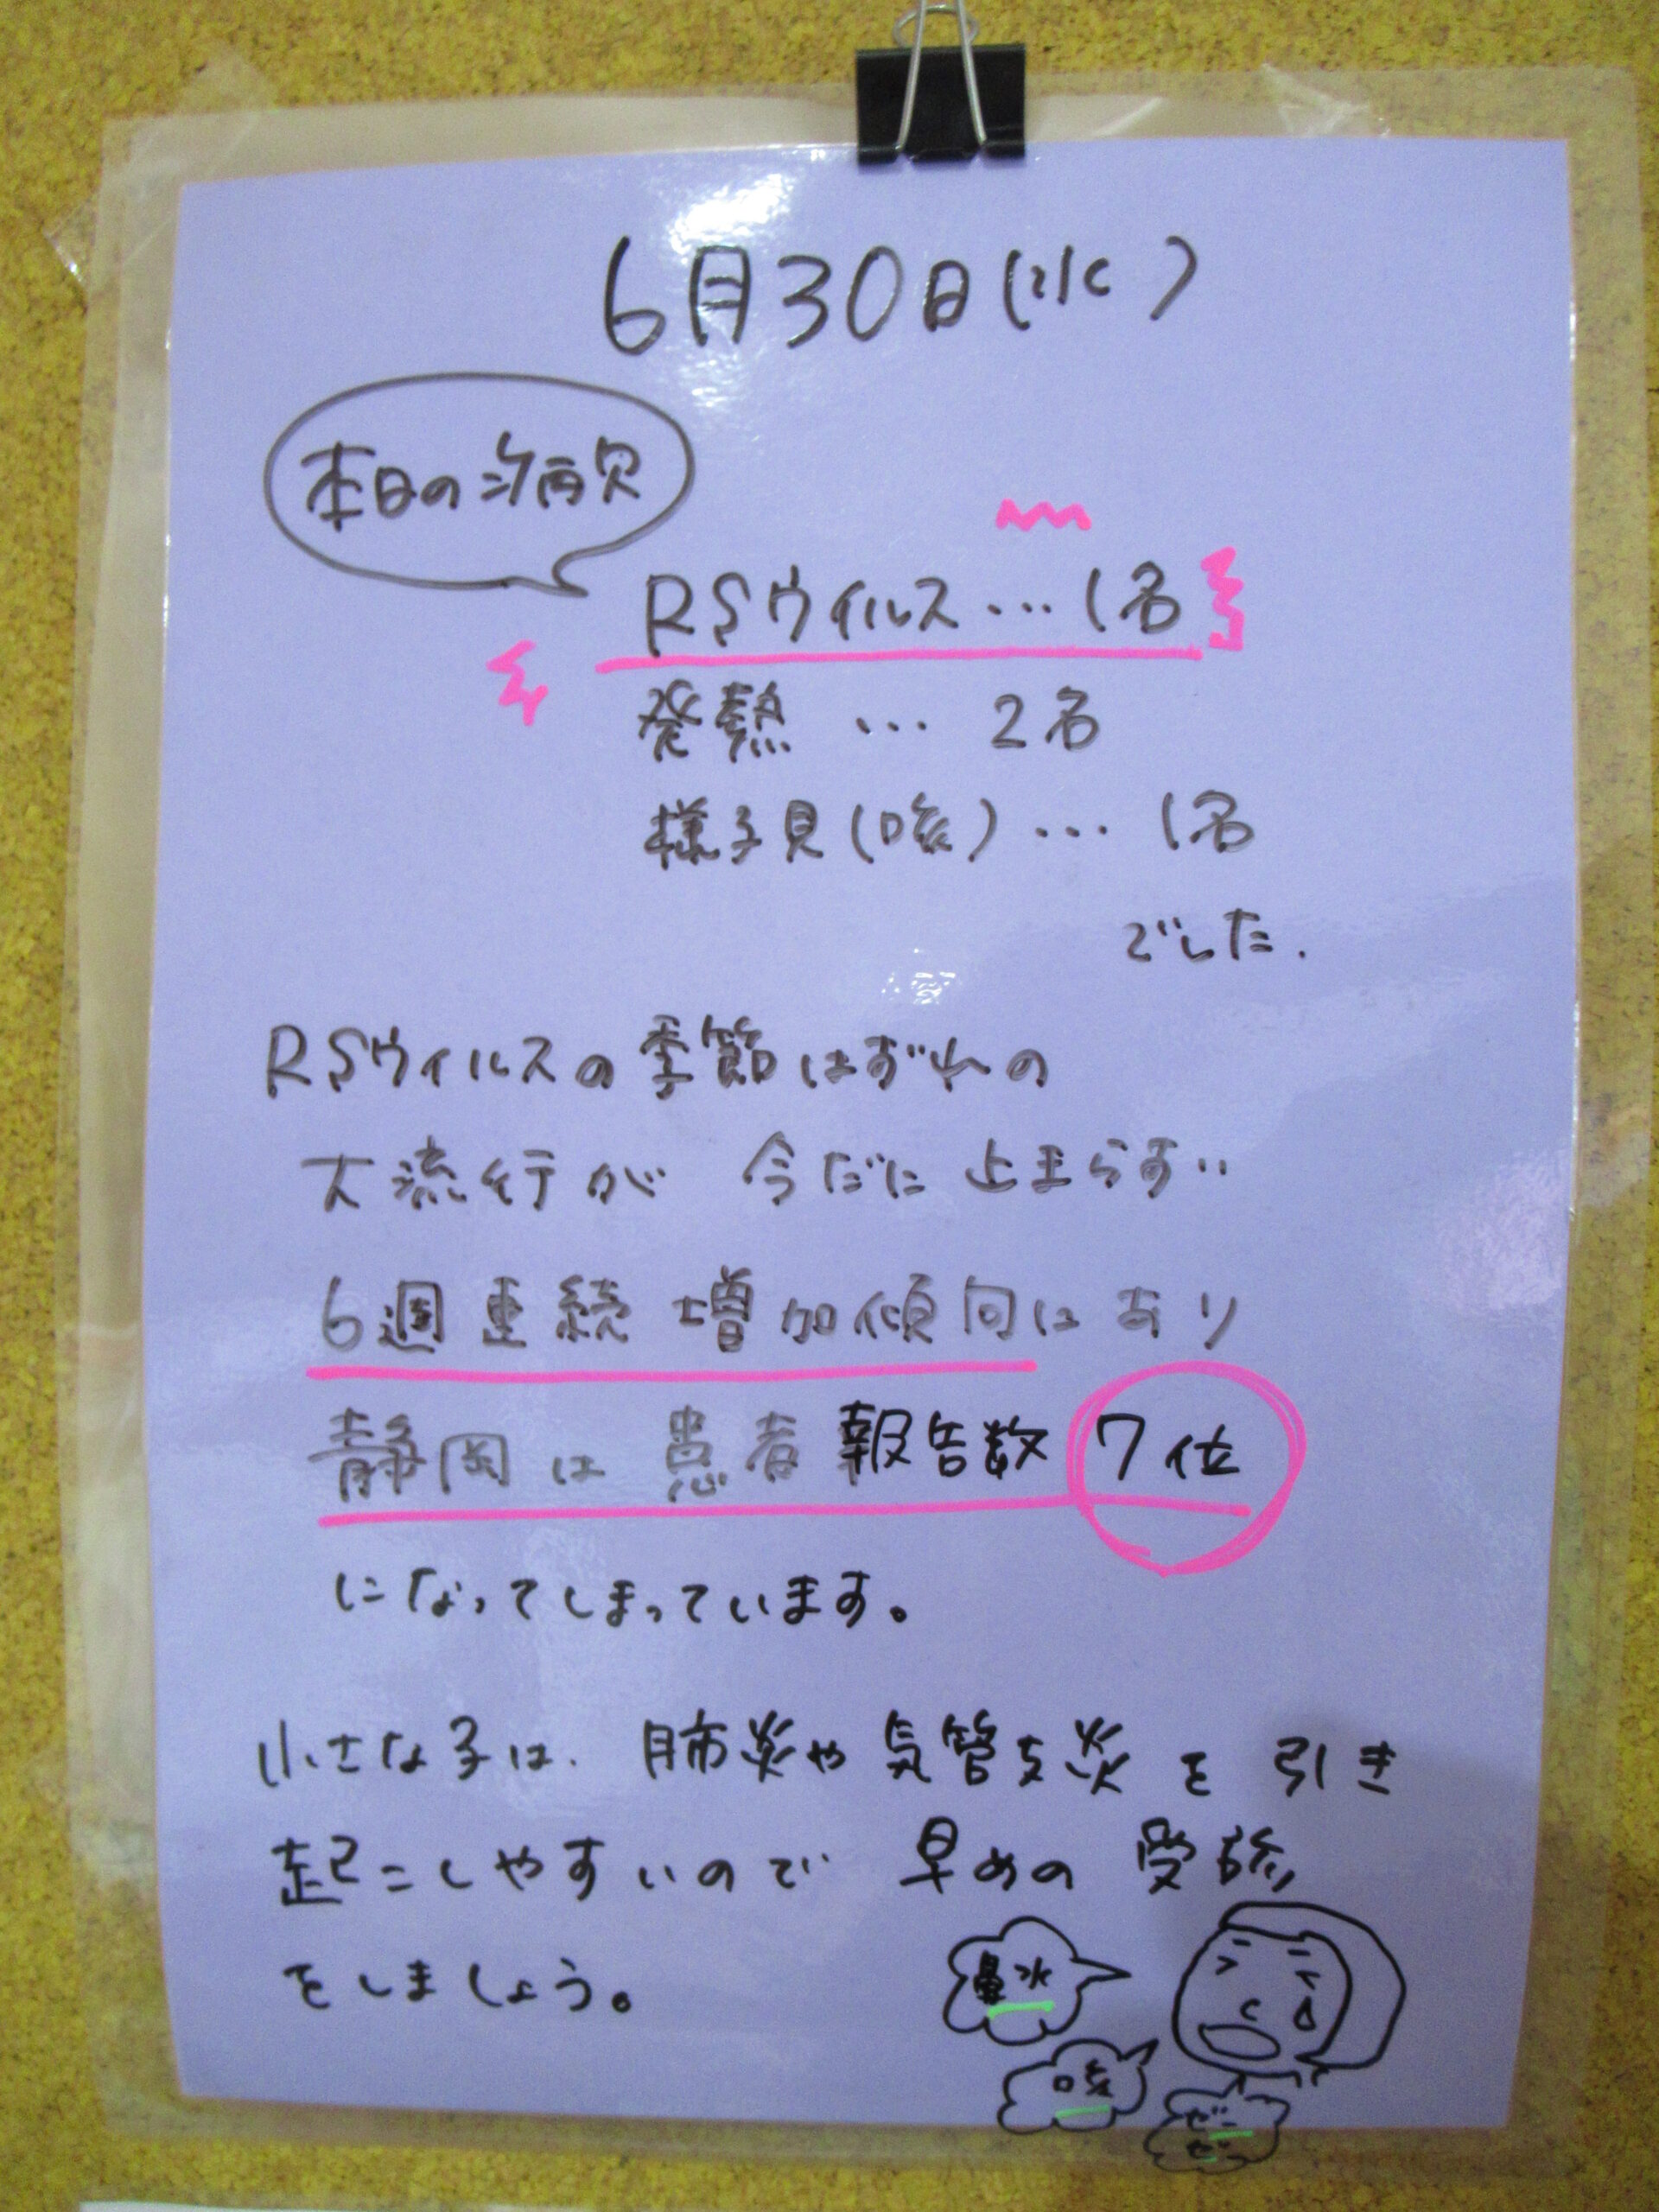 6月30日(水)
本日の病欠
RSウイルス…1名
発熱 … 2名
様子見(咳)… 1名
でした.
RSウイルスの季節はずれの
大流行が 今だに 止まらず‥
6週連続 増加傾向にあり
静岡は 患者 報告数 7位
になってしまっています。
小さな子は、肺炎や気管支炎を引き
起こしやすいので 早めの 受診
をしましょう。
鼻水
咳
ゼー
ゼー